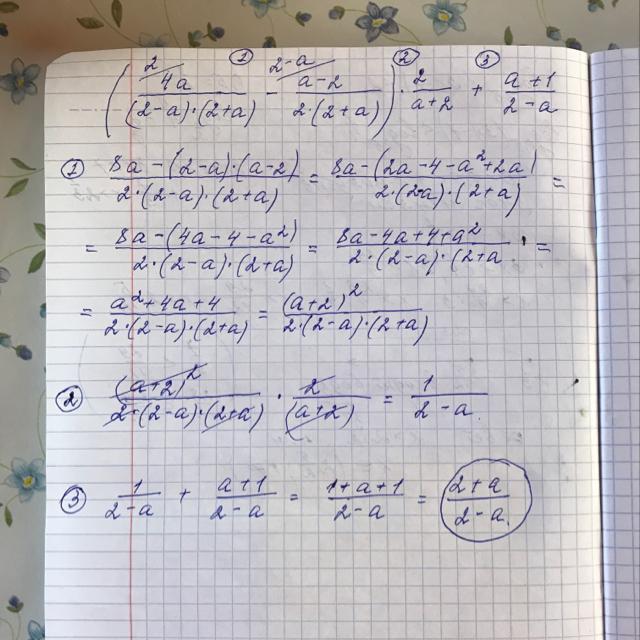 ( 2 4a/((2-a)·(2+a)) ① - 2-a (a-2)/(2·(2+a)) ) ② · 2/(a+2) ③ + (a+1)/(2-a)
① (8a-(2-a)·(a-2))/(2·(2-a)·(2+a)) = (8a-(2a-4-a²+2a))/(2·(2-a)·(2+a)) =
= (8a-(4a-4-a²))/(2·(2-a)·(2+a)) = (8a-4a+4+a²)/(2·(2-a)·(2+a =
= (a²+4a+4)/(2·(2-a)·(2+a)) = (a+2)²/(2·(2-a)·(2+a))
② (a+2)²/(2·(2-a)·(2+a)) · 2/(a+2) = 1/(2-a).
③ 1/(2-a) + (a+1)/(2-a) = (1+a+1)/(2-a) = (2+a)/(2-a.)